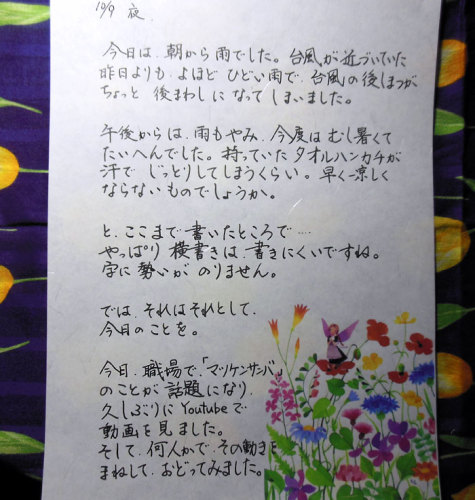 10/9 夜.
今日は、朝から雨でした。台風が近づいていた
昨日よりも、よほど ひどい雨で、台風の後しまつが
ちょっと 後まわしに なって しまいました。
午後からは、雨もやみ、今度は むし暑くて
たいへんでした。持っていた タオルハンカチが
汗で じっとりしてしまうくらい。早く涼しく
ならない ものでしょうか。
と、ここまで 書いたところで……
やっぱり 横書きは、書きにくいですね。
字に 勢いが のりません。
では、それはそれとして、
今日のことを。
今日、職場で、「マツケンサンバ」
のことが 話題になり、
久しぶりに Youtubeで
動画を 見ました。
そして、何人かで、その動きを
まねして、おどってみました。